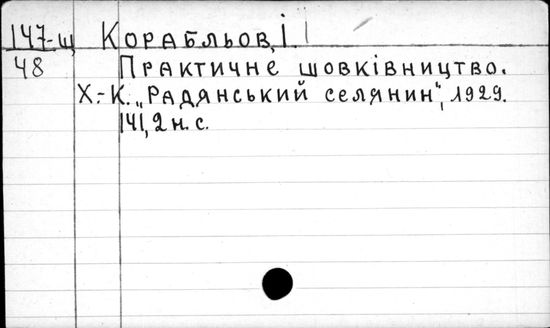 147-щ Корабльов, І.
48 Практичне шовківництво.
Х.-К. „Радянський селянин", 1929.
141, 2 н. с.